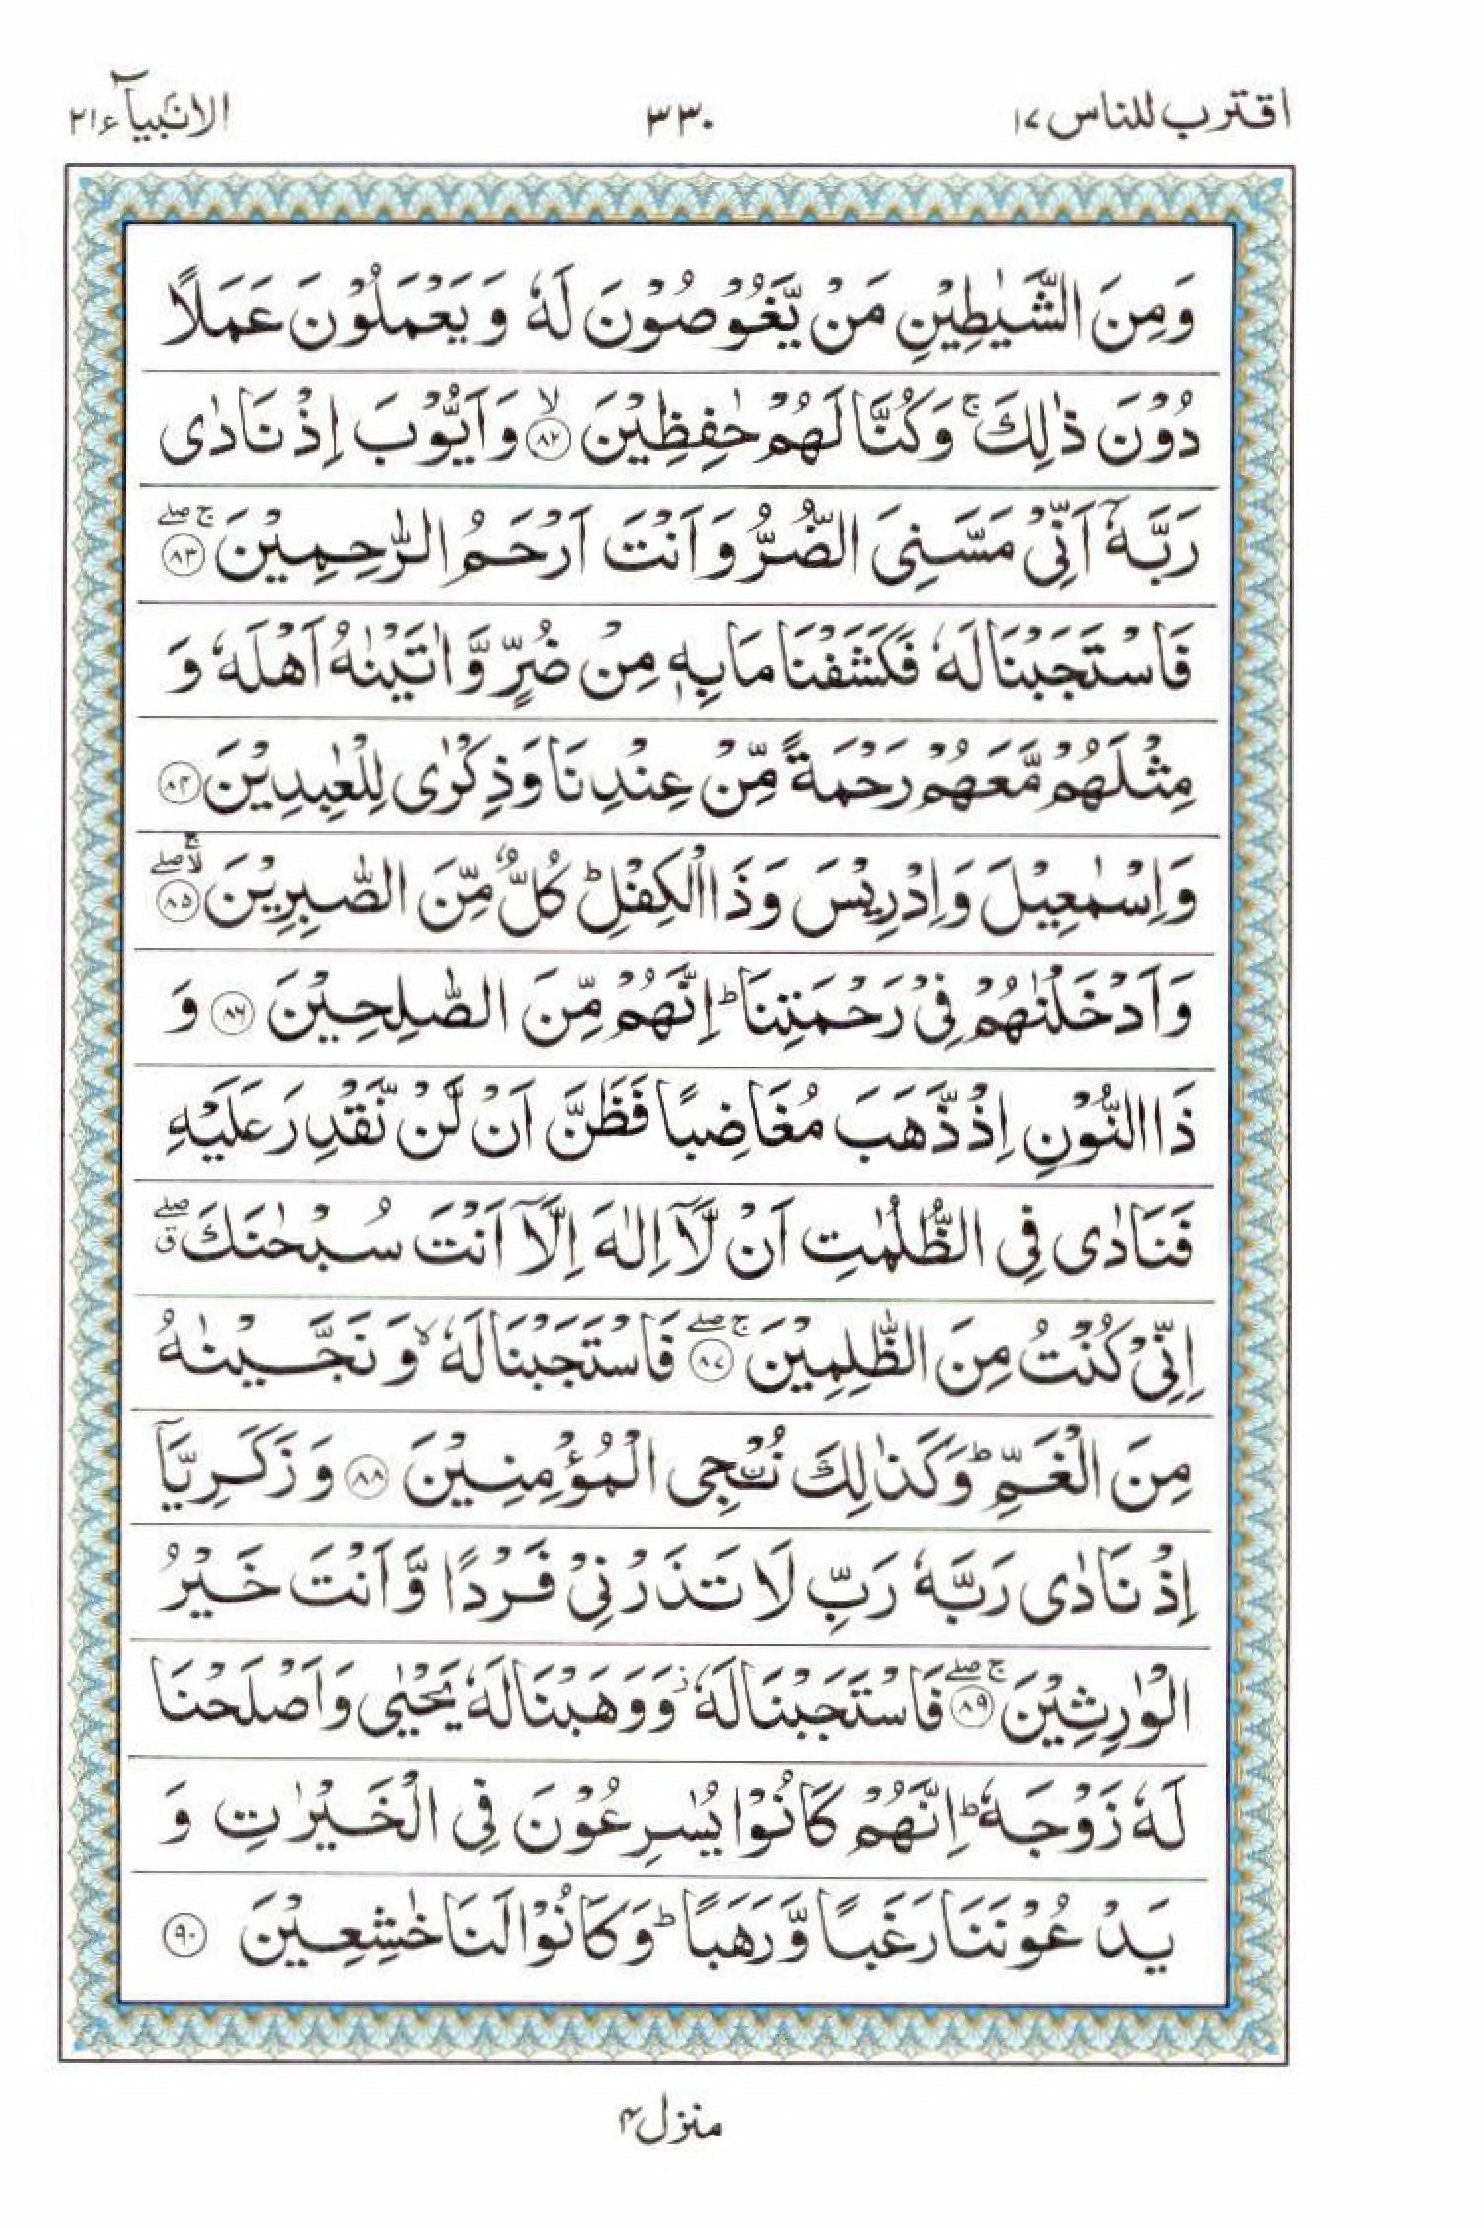 اقترب للناس ۱۷ ۳۳۰ الانبیآء ۲۱
وَمِنَ الشَّيٰطِيْنِ مَنْ يَّغُوْصُوْنَ لَهٗ وَ يَعْمَلُوْنَ عَمَلًا
دُوْنَ ذٰلِكَ ۚ وَكُنَّا لَهُمْ حٰفِظِيْنَ ۙ﴿۸۲﴾ وَاَيُّوْبَ اِذْ نَادٰى
رَبَّهٗۤ اَنِّىْ مَسَّنِىَ الضُّرُّ وَاَنْتَ اَرْحَمُ الرّٰحِمِيْنَ ۚۖ﴿۸۳﴾
فَاسْتَجَبْنَا لَهٗ فَكَشَفْنَا مَا بِهٖ مِنْ ضُرٍّ وَّاٰتَيْنٰهُ اَهْلَهٗ وَ
مِثْلَهُمْ مَّعَهُمْ رَحْمَةً مِّنْ عِنْدِنَا وَذِكْرٰى لِلْعٰبِدِيْنَ ﴿۸۴﴾
وَاِسْمٰعِيْلَ وَاِدْرِيْسَ وَذَا الْكِفْلِ ؕ كُلٌّ مِّنَ الصّٰبِرِيْنَ ۚۖ ﴿۸۵﴾
وَاَدْخَلْنٰهُمْ فِىْ رَحْمَتِنَا ؕ اِنَّهُمْ مِّنَ الصّٰلِحِيْنَ ﴿۸۶﴾ وَ
ذَا النُّوْنِ اِذْ ذَّهَبَ مُغَاضِبًا فَظَنَّ اَنْ لَّنْ نَّقْدِرَ عَلَيْهِ
فَنَادٰى فِى الظُّلُمٰتِ اَنْ لَّاۤ اِلٰهَ اِلَّاۤ اَنْتَ سُبْحٰنَكَ ۖق
اِنِّىْ كُنْتُ مِنَ الظّٰلِمِيْنَ ۚۖ﴿۸۷﴾ فَاسْتَجَبْنَا لَهٗ ۙ وَ نَجَّيْنٰهُ
مِنَ الْغَمِّ ؕ وَكَذٰلِكَ نُـنْجِى الْمُؤْمِنِيْنَ ﴿۸۸﴾ وَ زَكَرِيَّاۤ
اِذْ نَادٰى رَبَّهٗ رَبِّ لَا تَذَرْنِىْ فَرْدًا وَّاَنْتَ خَيْرُ
الْوٰرِثِيْنَ ۚۖ﴿۸۹﴾ فَاسْتَجَبْنَا لَهٗ ز وَوَهَبْنَا لَهٗ يَحْيٰى وَاَصْلَحْنَا
لَهٗ زَوْجَهٗ ؕ اِنَّهُمْ كَانُوْا يُسٰرِعُوْنَ فِى الْخَيْرٰتِ وَ
يَدْعُوْنَنَا رَغَبًا وَّرَهَبًا ؕ وَكَانُوْا لَنَا خٰشِعِيْنَ ﴿۹۰﴾
منزل ۴